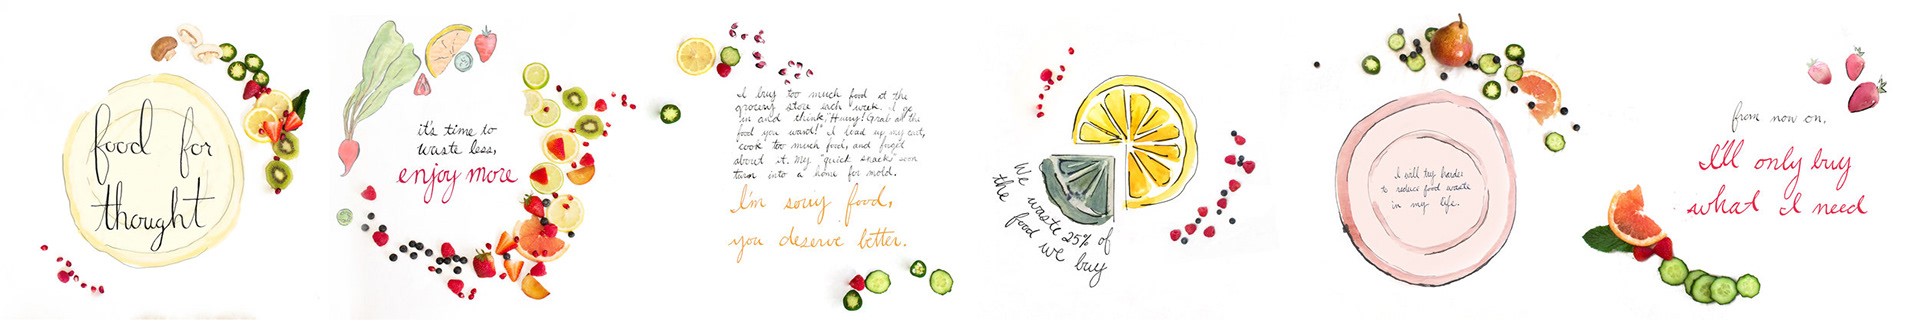 food for
thought
it's time to
waste less,
enjoy more
I buy too much food at the
grocery store each week. I go
in and think, "Hurry! Grab all the
food you want!" I load up my cart,
cook too much food, and forget
about it. My "quick snacks" soon
turn into a home for mold.
I'm sorry food,
you deserve better.
We waste 25% of
the food we buy
I will try harder
to reduce food waste
in my life.
from now on,
I'll only buy
what I need